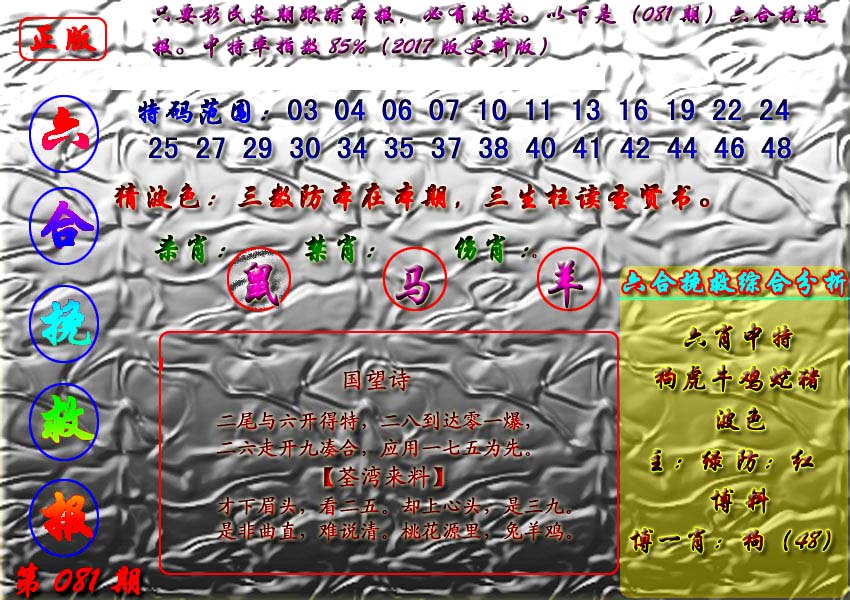 正版
只要彩民长期跟踪本报，必有收获。以下是（081期）六合挽救
报。中特率指数85%（2017版更新版）
六合挽救报
第081期
特码范围：03 04 06 07 10 11 13 16 19 22 24
25 27 29 30 34 35 37 38 40 41 42 44 46 48
猜波色：三数防本在本期，三生枉读圣贤书。
杀肖：鼠 禁肖：马 伤肖：羊
国望诗
二尾与六开得特，二八到达零一爆，
二六走开九凑合，应用一七五为先。
【荃湾来料】
才下眉头，看二五。却上心头，是三九。
是非曲直，难说清。桃花源里，兔羊鸡。
六合挽救综合分析
六肖中特
狗虎牛鸡蛇猪
波色
主：绿防：红
博料
博一肖：狗（48）